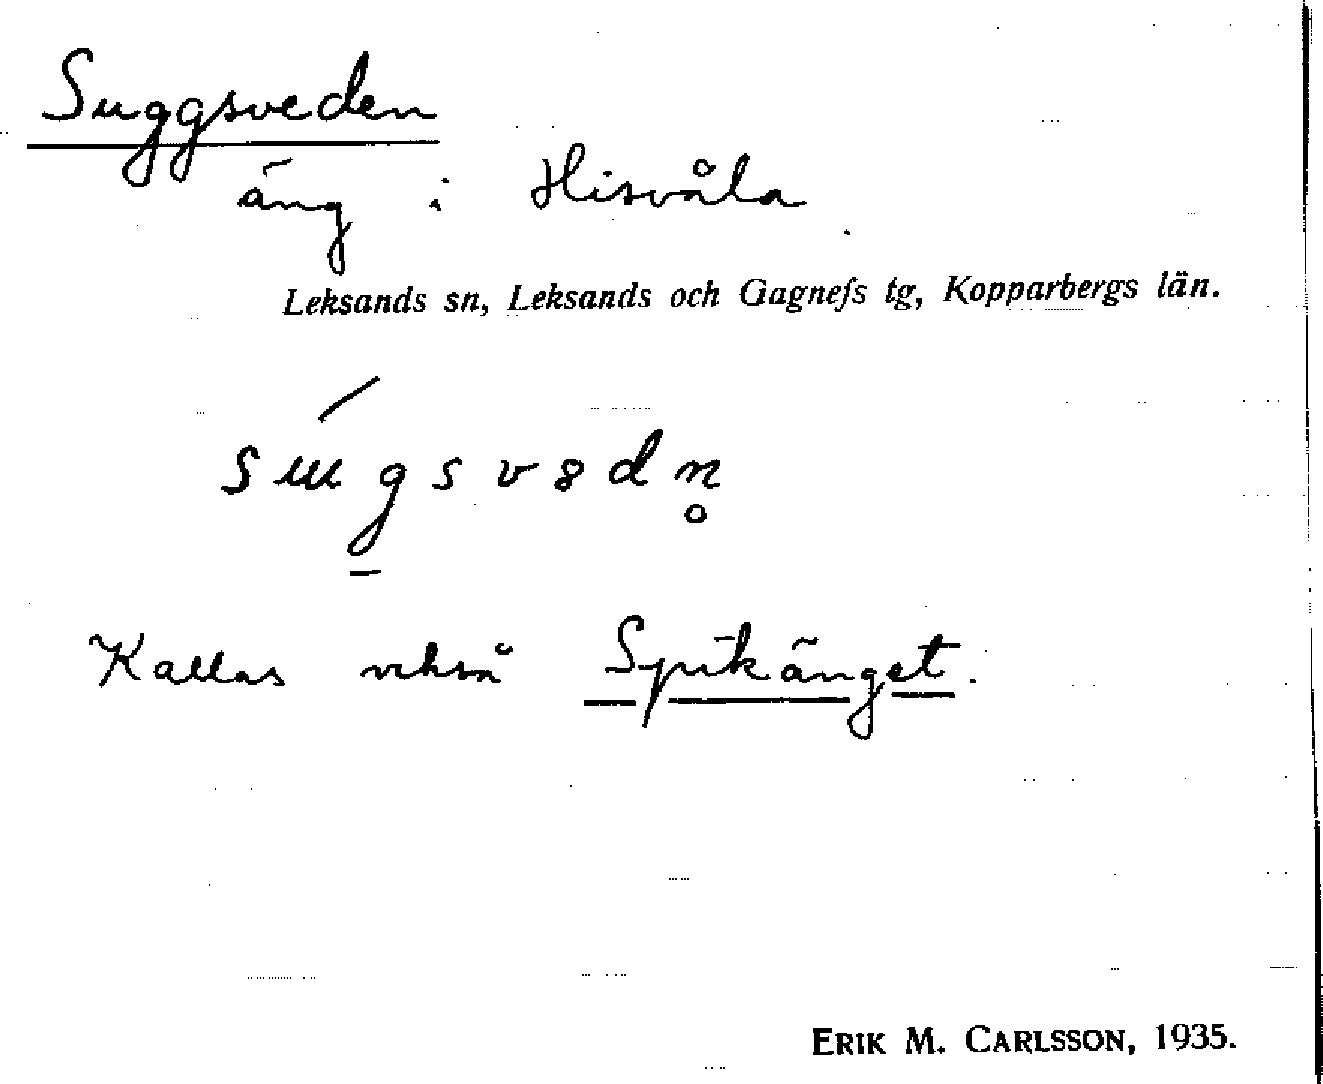 Suggsveden
äng i Hisvåla
Leksands sn, Leksands och Gagnefs tg, Kopparbergs län.
Kallas också Spikänget.
ERIK M. CARLSSON, 1935.